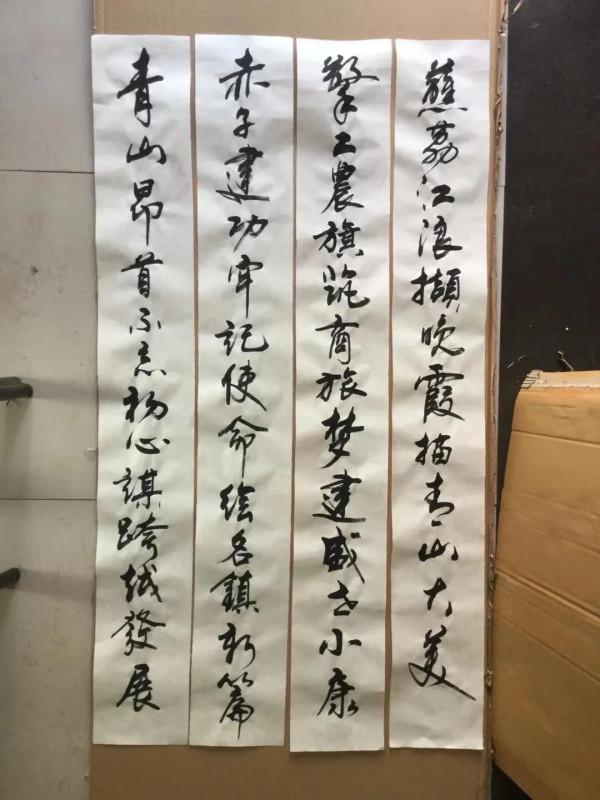 蘸荔江浪擷晚霞描青山大美
擎工農旗筑商旅梦建盛世小康
赤子建功牢記使命絵名鎮新篇
青山昂首不忘初心謀跨越發展